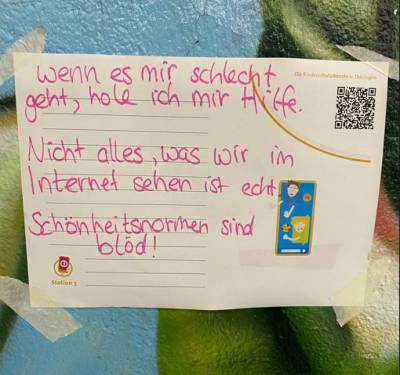 wenn es mir schlecht
geht, hole ich mir Hilfe.
Die Kinderschutzdienste in Thüringen
Nicht alles, was wir im
Internet sehen ist echt
Schönheitsnormen sind
blöd!
Station 5